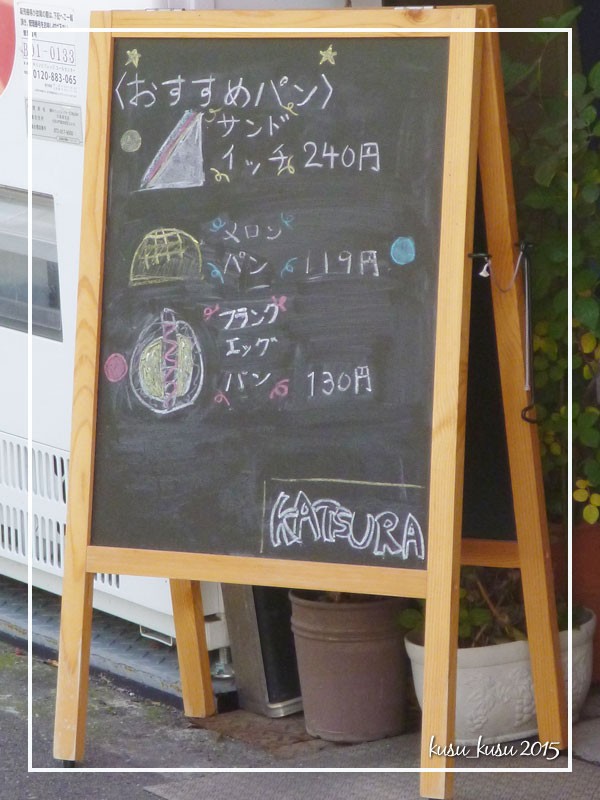 01-0133
0120-883-065
〈おすすめパン〉
サンド
イッチ 240円
メロン
パン 119円
フランク
エッグ
パン 130円
KATSURA
kusu_kusu 2015